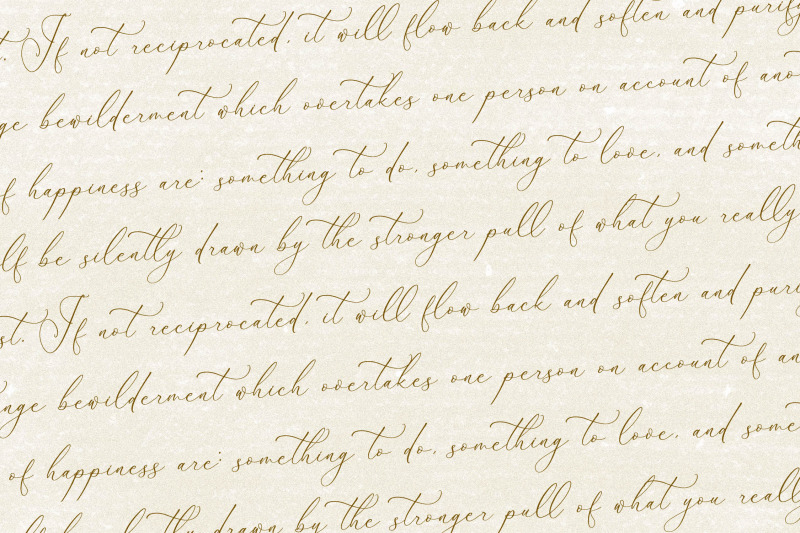 t. If not reciprocated, it will flow back and soften and purify
ge bewilderment which overtakes one person on account of ano
f happiness are: something to do, something to love, and someth
lf be silently drawn by the stronger pull of what you really
st. If not reciprocated, it will flow back and soften and puri
nge bewilderment which overtakes one person on account of an
of happiness are: something to do, something to love, and some
drawn by the stronger pull of what you really